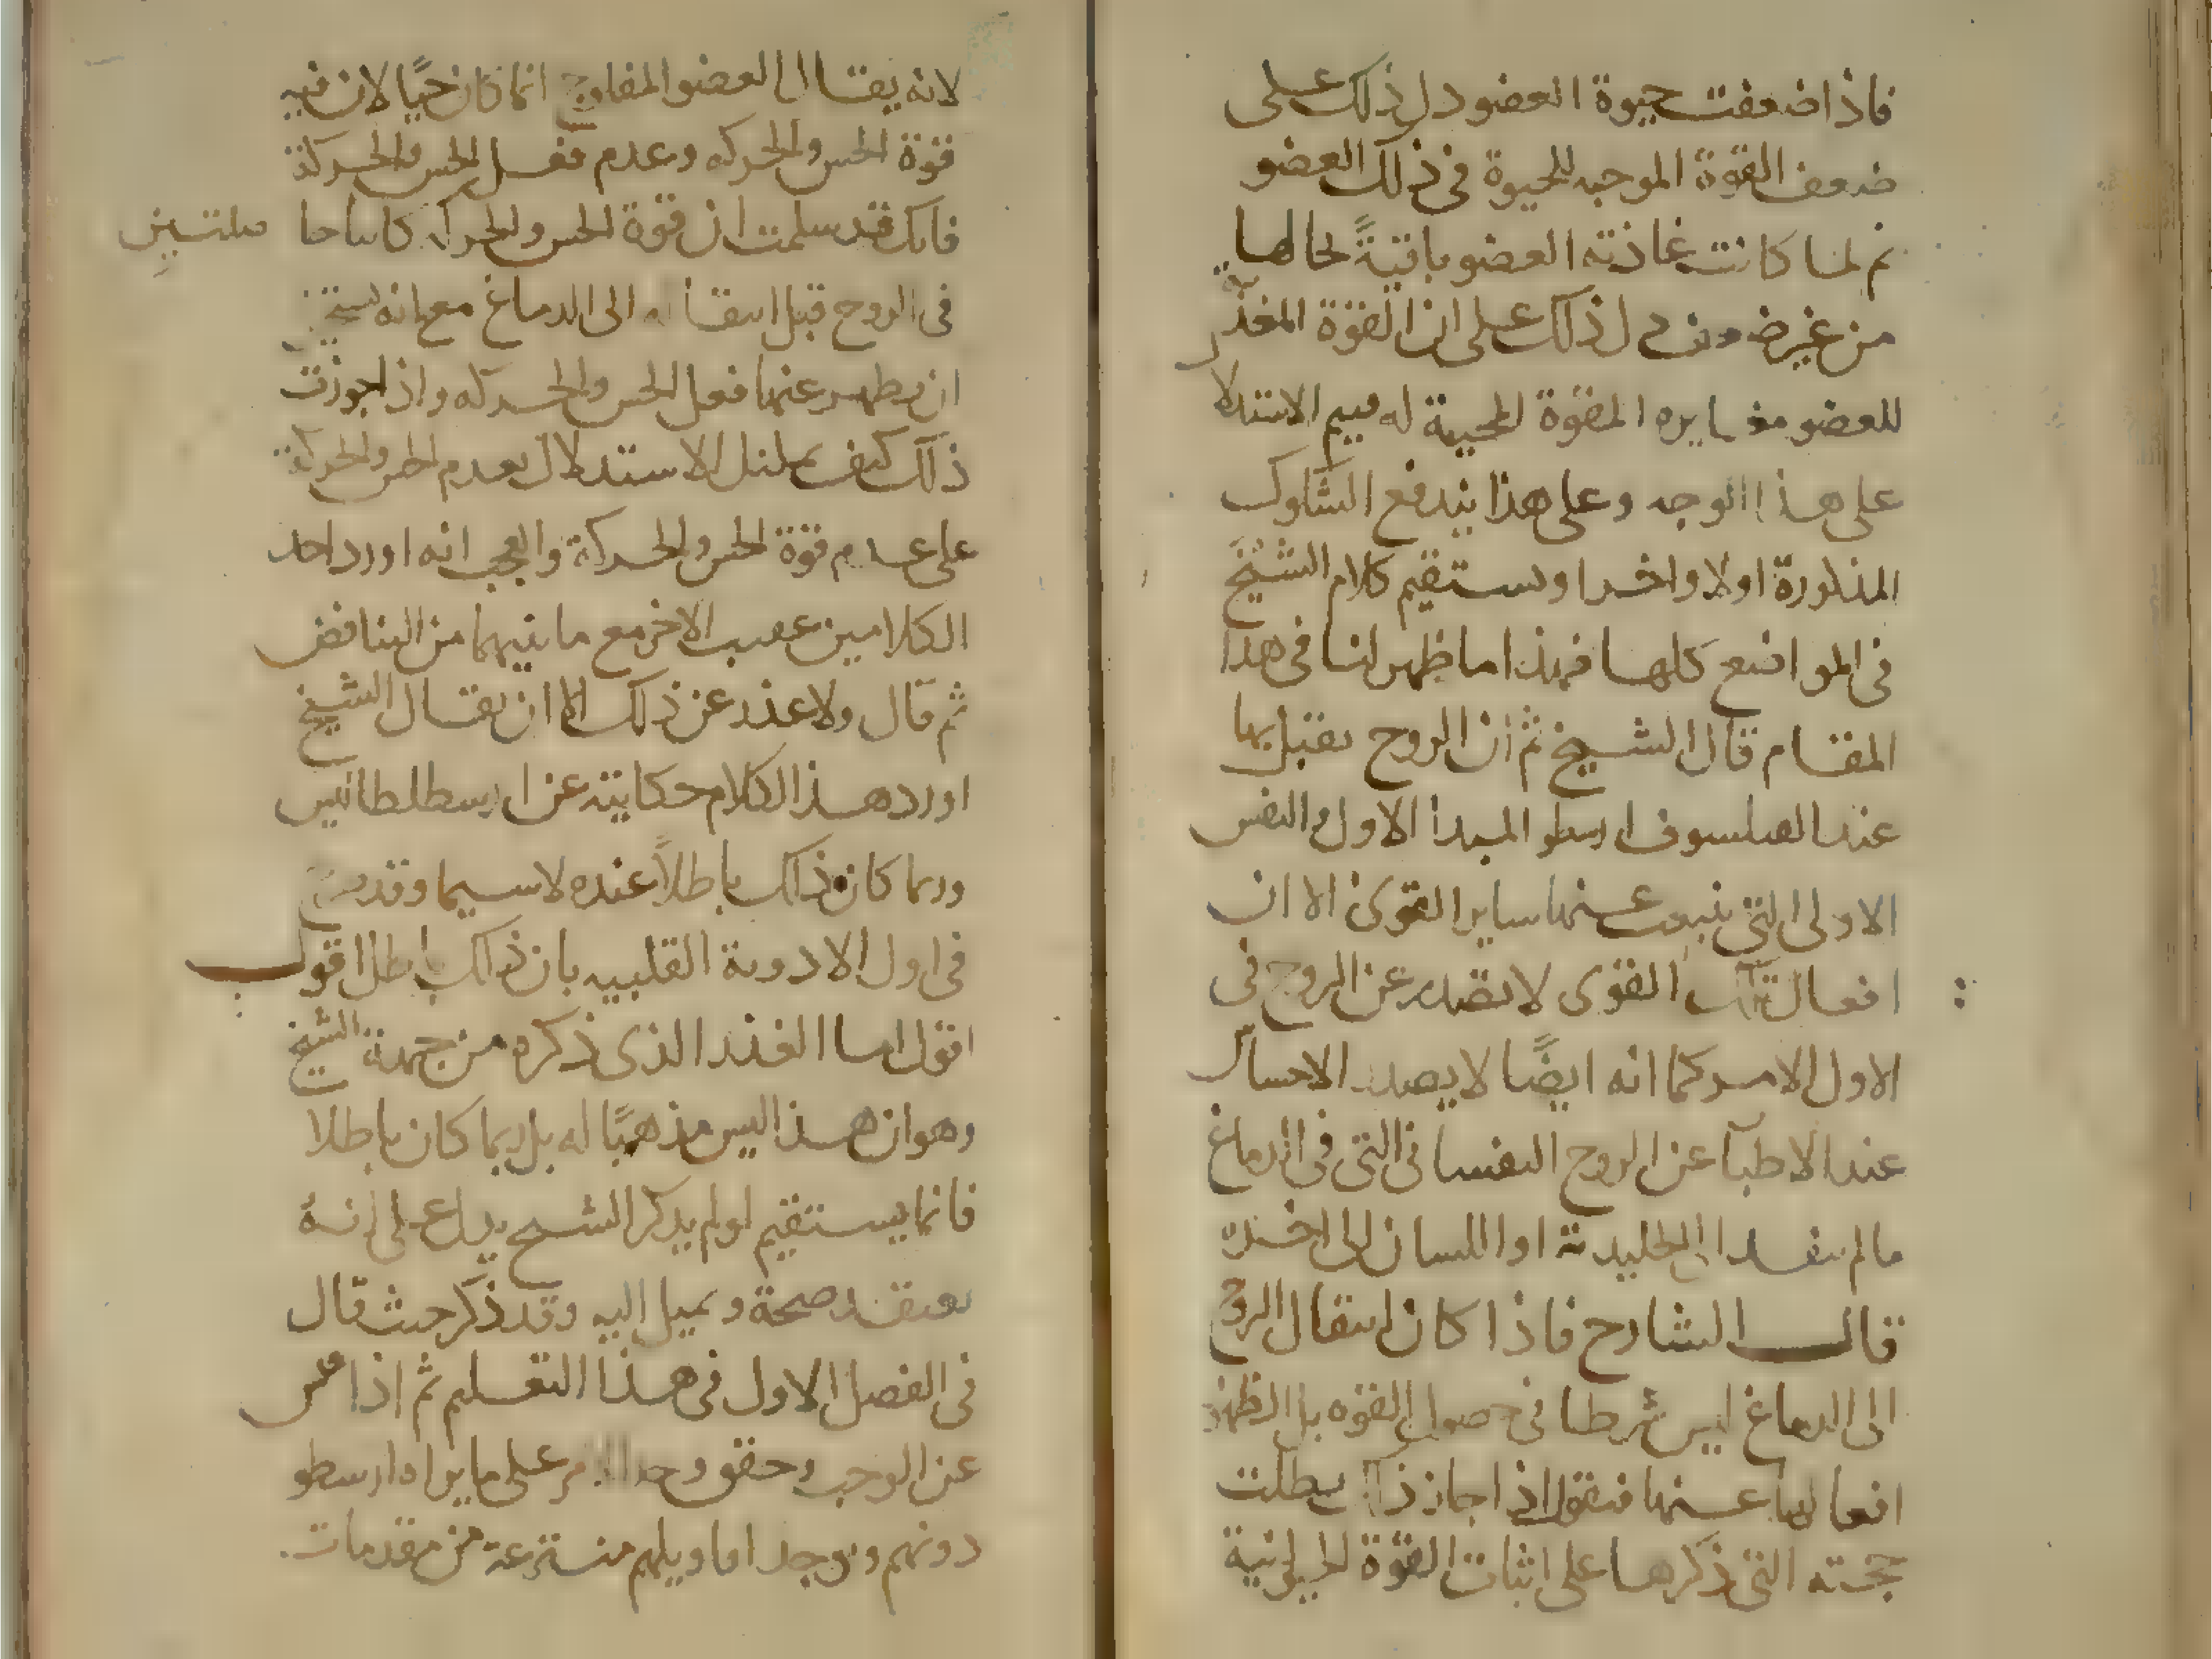 فاذا ضعفت حيوة العضو دل ذلك على
ضعف القوة الموجبه للحيوة فى ذلك العضو
ثم لما كانت غاذته العضو باقيةً لحالها
من غير ضعف دل ذلك على ان القوة المغذية
للعضو مغايره المقوة المحيية له فيتم الاستدلال
على هذا الوجه وعلى هذا يندفع الشكوك
المذكورة اولا واخرا ويستقيم كلام الشيخ
فى المواضع كلها فهذا ما ظهر لنا فى هذا
المقام قال الشيخ ثم ان الروح يقبل بها
عند الفيلسوف ارسطو المبدا الاول والنفس
الاولى التى ينبعث عنها ساير القوى الا ان
افعال تلك القوى لا تصدر عن الروح فى
الاول الامر كما انه ايضًا لا يصدر الاحساس
عند الاطبآ عن الروح النفسانى التى فى الدماغ
ما لم ينفد الى الجليدية او اللسان الى اخره
قال الشارح فاذا كان انتقال الروح
الى الدماغ ليس شرطا فى حصول القوه بل لظهور
افعالها عنها فنقول اذا جاز ذلك بطلت
حجته التى ذكرها على اثبات القوة الحيوانية
لانه يقال العضو المفلوج انما كان حيًا لان فيه
قوة الحس والحركه وعدم فعل الحس والحركة
فانك قد سلمت ان قوة الحس والحركة كانتا حاصلتين
فى الروح قبل انتقاله الى الدماغ مع انه يستحيل
ان يظهر عنها فعل الحس والحركه واذا جوزت
ذلك كيف يمكنك الاستدلال بعدم الحس والحركة
على عدم قوة الحس والحركة والعجب انه اورد احد
الكلامين عقيب الاخر مع ما بينهما من التناقض
ثم قال ولا عذر عن ذلك الا ان يقال الشيخ
اورد هذا الكلام حكاية عن ارسطاطاليس
وربما كان ذلك باطلاً عنده لاسيما وقد صرح
فى اول الادوية القلبيه بان ذلك باطل اقول
اقول اما العذر الذى ذكره من جهة الشيخ
وهو ان هذا ليس مذهبًا له بل ربما كان باطلا
فانما يستقيم لو لم يذكر الشيخ يدل على انه
يعتقد صحة ويميل اليه وقد ذكر حيث قال
فى الفصل الاول فى هذا التعليم ثم اذا فتش
عن الوجب وحقق وجد الامر على ما يراه ارسطو
دونهم ويوجد اقاويلهم منتزعة من مقدمات